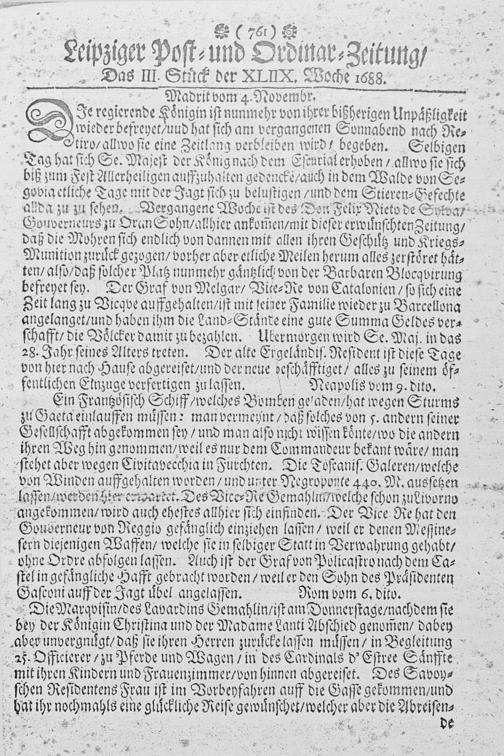 ( 761 )
Leipziger Post- und Ordinar-Zeitung/
Das III. Stück der XLIIX. Woche 1688.
Madrit vom 4. Novembr.
DJe regierende Königin ist nunmehr von ihrer bißherigen Unpäßligkeit
wieder befreyet/ uud hat sich am vergangenen Sonnabend nach Re-
tiro/ allwo sie eine Zeitlang verbleiben wird/ begeben. Selbigen
Tag hat sich Se. Majest der König nach dem Escurial erhoben/ allwo sie sich
biß zum Fest Allerheiligen auffzuhalten gedencke/ auch in dem Walde von Se-
govia etliche Tage mit der Jagt sich zu belustigen/ und dem Stieren-Gefechte
allda zu zu sehen. Vergangene Woche ist des Don Felix Nieto de Sylva/
Gouverneurs zu Oran Sohn/ allhier ankomen/ mit dieser erwünschten Zeitung/
daß die Mohren sich endlich von dannen mit allen ihren Geschütz und Kriegs-
Munition zurück gezogen/ vorher aber etliche Meilen herum alles zerstöret hät-
ten/ also/ daß solcher Platz nunmehr gäntzlich von der Barbaren Blocqvirung
befreyet sey. Der Graf von Melgar/ Vice-Re von Catalonien/ so sich eine
Zeit lang zu Vicque auffgehalten/ ist mit seiner Familie wieder zu Barcellona
angelanget/ und haben ihm die Land-Stände eine gute Summa Geldes ver-
schafft/ die Völcker damit zu bezahlen. Ubermorgen wird Se. Maj. in das
28. Jahr seines Alters treten. Der alte Engeländis. Resident ist diese Tage
von hier nach Hause abgereiset/ und der neue beschäfftiget/ alles zu seinem öf-
fentlichen Einzuge verfertigen zu lassen. Neapolis vom 9. dito.
Ein Französisch Schiff/ welches Bomben geladen/ hat wegen Sturms
zu Gaeta einlauffen müssen: man vermeynt/ daß solches von 5. andern seiner
Gesellschafft abgekommen sey/ und man also nicht wissen könte/ wo die andern
ihren Weg hin genommen/ weil es nur dem Commandeur bekant wäre/ man
stehet aber wegen Civitavecchia in Furchten. Die Toscanis. Galeren/ welche
von Winden auffgehalten worden/ und unter Negroponte 440. M. aussetzen
lassen/ werden hier erwartet. Des Vice-Re Gemahlin/ welche schon zu Livorno
angekommen/ wird auch ehestes allhier sich einfinden. Der Vice Re hat den
Gouverneur von Reggio gefänglich einziehen lassen/ weil er denen Messine-
sern diejenigen Waffen/ welche sie in selbiger Statt in Verwahrung gehabt/
ohne Ordre abfolgen lassen. Auch ist der Graf von Policastro nach dem Ca-
stel in gefängliche Hafft gebracht worden/ weil er den Sohn des Präsidenten
Gasconi auff der Jagt übel angelassen. Rom vom 6. dito.
Die Marqvisin/ des Lavardins Gemahlin/ ist am Donnerstage/ nachdem sie
bey der Königin Christina und der Madame Lanti Abschied genomen/ dabey
aber unvergnügt/ daß sie ihren Herren zurücke lassen müssen/ in Begleitung
25. Officierer/ zu Pferde und Wagen/ in des Cardinals d' Estree Sänffte
mit ihren Kindern und Frauenzimmer/ von hinnen abgereiset. Des Savoy-
schen Residentens Frau ist im Vorbeyfahren auff die Gasse gekommen/ und
hat ihr nochmahls eine glückliche Reise gewünschet/ welcher aber die Abreisen-
de